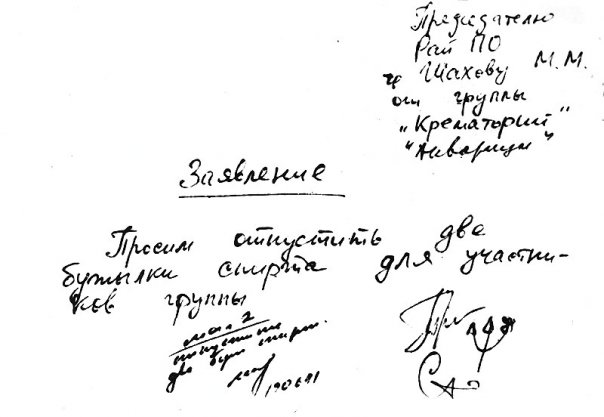 Председателю
Рай ПО
гр Шахову М.М.
от группы
„Крематорий"
"Аквариум"
Заявление
Просим отпустить две
бутылки спирта для участни-
ков группы
маг 2
отпустить
две бут спирт.
190691